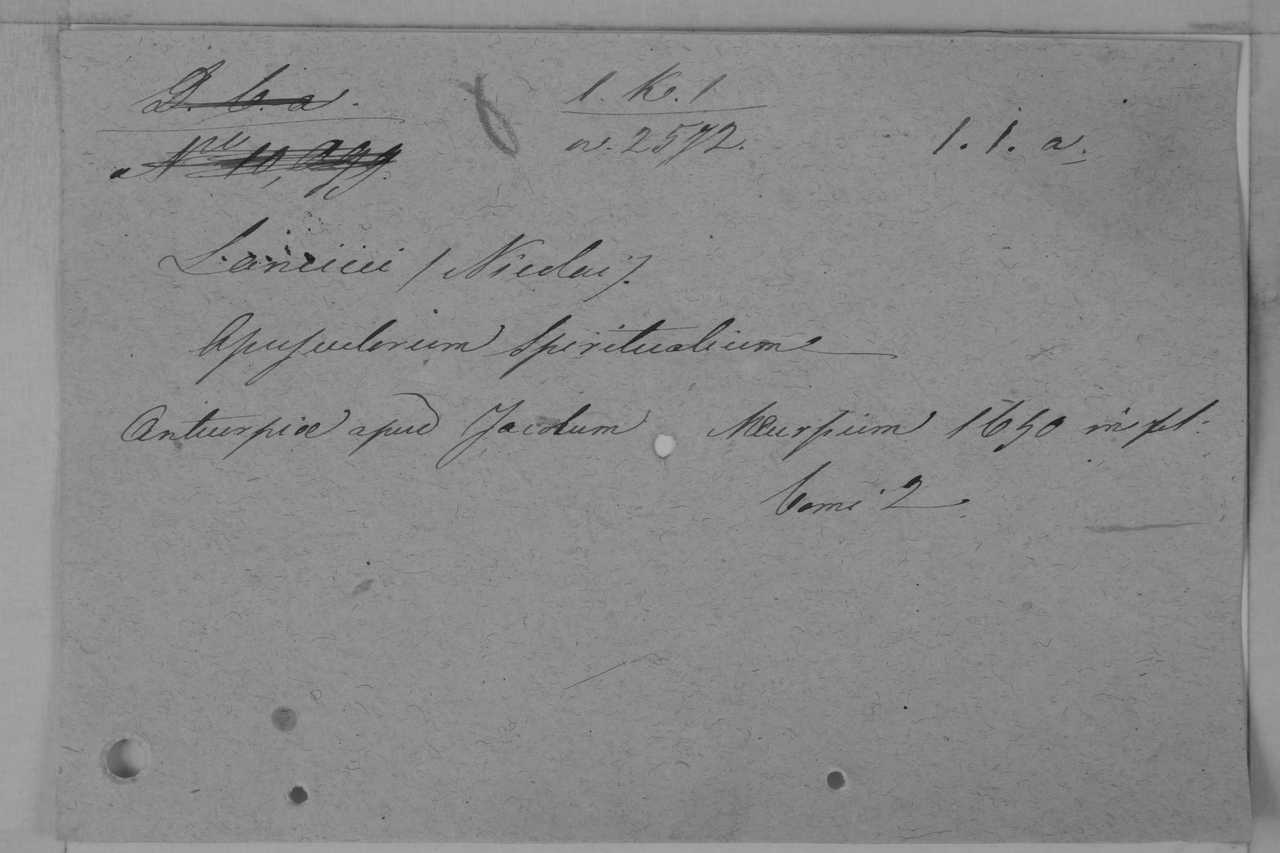 D. b. a. 1. K. 1
Nru 10,999. n. 2572. 1. 1. a.
Lancicii / Nicolai /.
Opusculorum Spiritualium
Antverpiæ apud Jacobum Meursium 1650 in fol.
tomi 2